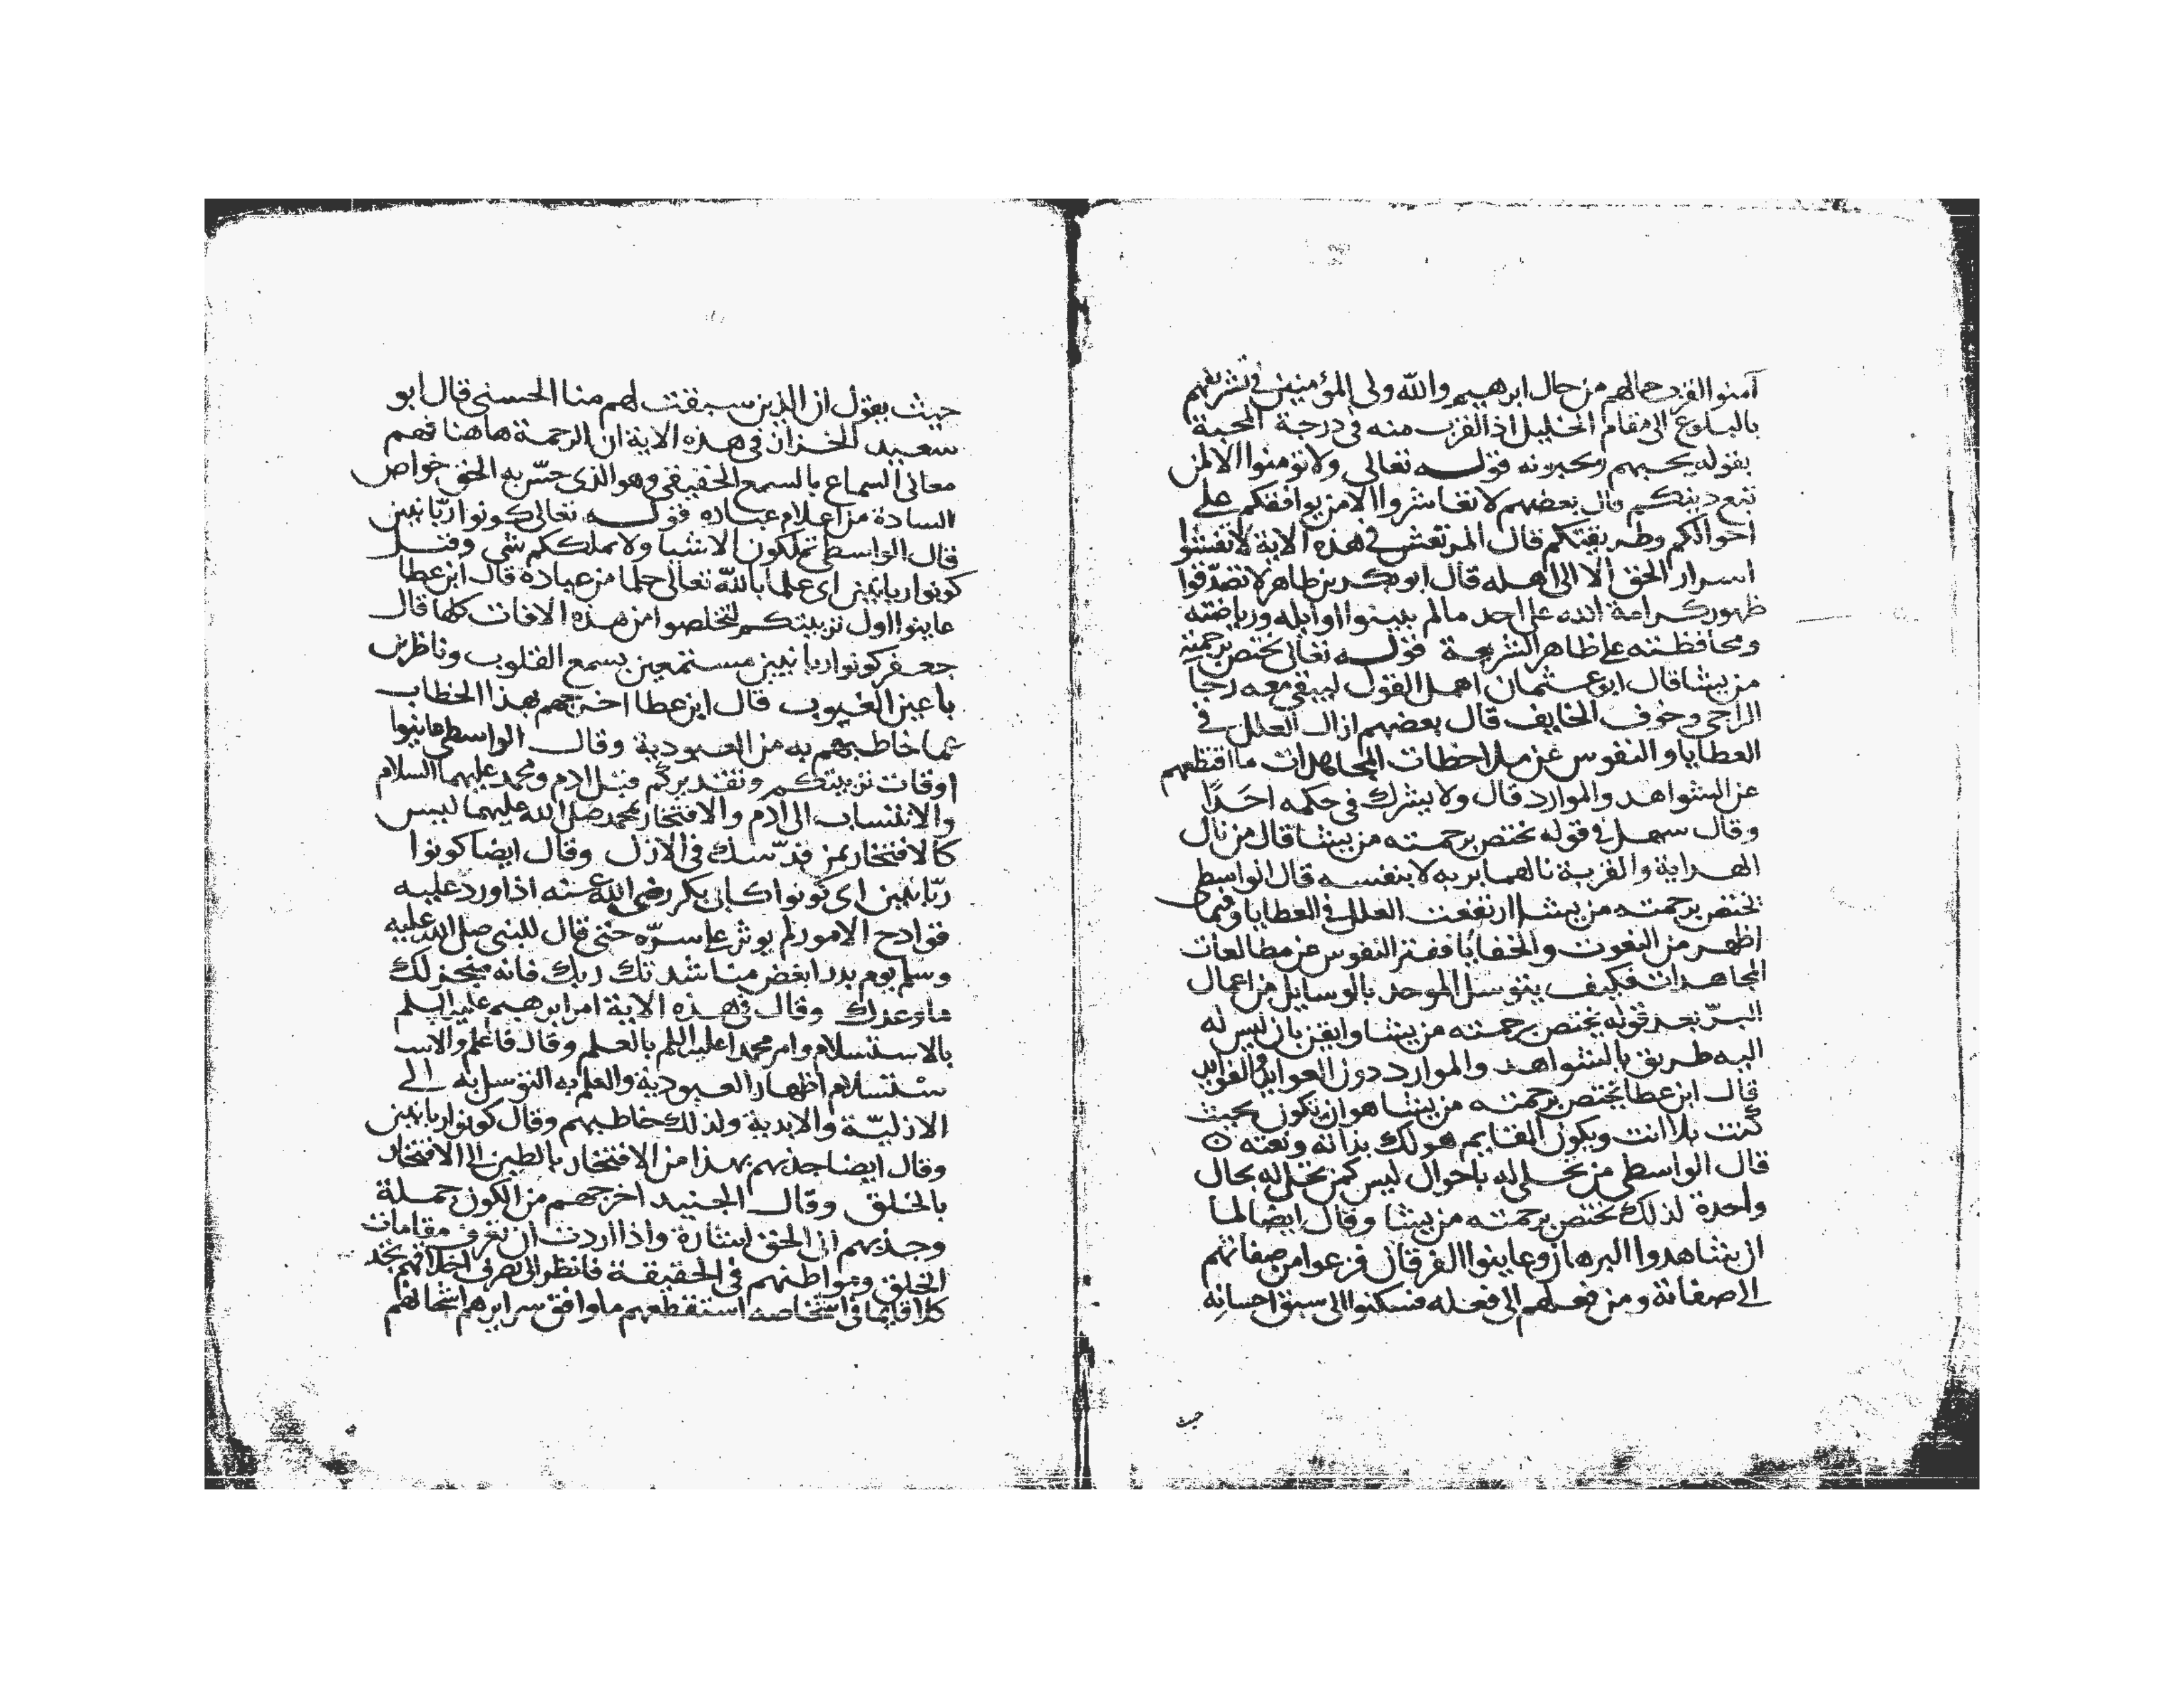 آمنوا القرب حالهم من حال ابرهيم والله ولى المؤمنين فى تشريفهم
بالبلوغ الى مقام الخليل اذ القرب منه فى درجة المحبة
بقوله يحبهم ويحبونه قوله تعالى ولا تؤمنوا الا لمن
تبع دينكم قال بعضهم لا تعاشروا الا من يوافقكم على
احوالكم وطريقتكم قال المرتعش فى هذه الاية لا تفشوا
اسرار الحق الا الى اهله قال ابو بكر بن طاهر لا تصدقوا
ظهور كرامة الله على احد مالم يبينوا اوايله ورياضته
ومحافظته على ظاهر الشريعة قوله تعالى يختص برحمته
من يشا قال ابو عثمان اهمل القول ليبقى معه رجا
الراجى وخوف الخايف قال بعضهم ازال العلل فى
العطايا والنفوس عن ملاحظات المجاهدات ما اقتطعهم
عن الشواهد والموارد قال ولا يشرك فى حكمه احدا
وقال سهل فى قوله يختص برحمته من يشا قال من نال
الهداية والقربة نالهما بربه لا بنفسه قال الواسطى
يختص برحمته من يشا ارتفعت العلل فى العطايا وفيما
اظهر من النعوت والخفايا ففتر النفوس عن مطالعات
المجاهدات فكيف يتوسل الموحد بالوسايل من اعمال
البرّ بعد قوله يختص برحمته من يشا وايقن بان ليس له
اليه طريق بالشواهد والموارد دون العوايد والفوايد
قال ابن عطا يختص برحمته من يشا هو ان تكون بحيث
كنت بلا انت ويكون القايم هو لك بذاته ونعته
قال الواسطى من تجلى له باحوال ليس كمن تجلى له بحال
واحدة لذلك يختص برحمته من يشا وقال ايضا لما
ان شاهدوا البرهان وعاينوا الفرقان فزعوا من صفاتهم
الى صفاته ومن فعلهم الى فعله فسكنوا الى سبق احسانه
حيث
حيث يقول ان الذين سبقت لهم منا الحسنى قال ابو
سعيد الخراز فى هذه الاية ان الرحمة هاهنا فهم
معانى السماع بالسمع الحقيقى وهو الذى خسّ به الحق خواص
السادة من اعلام عباده قوله تعالى كونوا ربّانيين
قال الواسطى تملكون الاشيا ولا يملككم شى وقيل
كونوا ربانيين اى علما بالله تعالى حلما من عباده قال ابن عطا
عاينوا اول تربيتكم لتخلصوا من هذه الافات كلها قال
جعفر كونوا ربانيين مستمعين بسمع القلوب وناظرين
باعين الغيوب قال ابن عطا اخرجهم بهذا الخطاب
عما خاطبهم به من العبودية وقال الواسطى عاينوا
اوقات تربيتكم وتقديركم قبل ادم ومحمد عليهما السلام
والانتساب الى ادم والافتخار بمحمد صلى الله عليهما ليس
كالافتخار بمن قدّسك فى الازل وقال ايضا كونوا
ربّانيين اى كونوا كابى بكر رضى الله عنه اذا ورد عليه
قوادح الامور لم يوثر على سرّه حتى قال للنبى صلى الله عليه
وسلم يوم بدر ابغض مناشدتك ربك فانه منجز لك
ما وعدك وقال فى هذه الاية امر ابرهيم عليه السلم
بالاستسلام وامر محمدا عليه السلم بالعلم وقال فاعلم والاست
ستسلام اظهار العبودية والعلم به التوسل به الى
الازليّة والابدية ولذلك خاطبهم وقال كونوا ربانيين
وقال ايضا جذبهم بهذا من الافتخار بالطين الى الافتخار
بالخلق وقال الجنيد اخرجهم من الكون جملة
وجذبهم الى الحق اشارة واذا اردت ان تعرف مقامات
الخلق ومواطنهم فى الحقيقة فانظر الى تصرف اخلاقهم تجد
كلا قايما فى اشخاصه استقطعهم ما وافق سرايرهم اشخاصهم